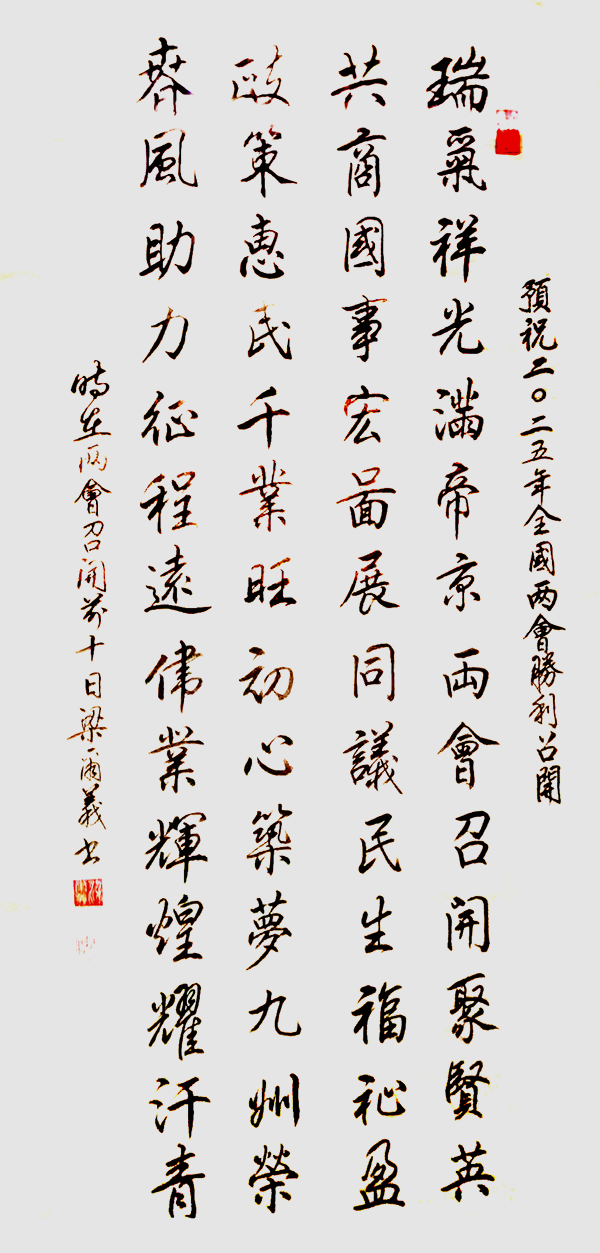 預祝二〇二五年全國两會勝利召開
瑞氣祥光滿帝京両會召開聚賢英
共商國事宏啚展同議民生福祉盈
政策惠民千業旺初心築夢九州榮
春風助力征程遠偉業輝煌耀汗青
時在两會召開前十日梁爾義书